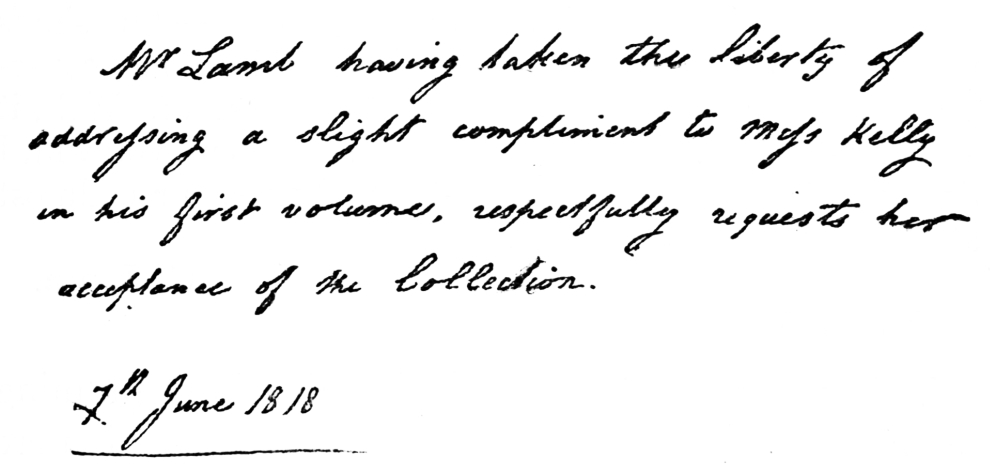 Mr Lamb having taken the liberty of
addressing a slight compliment to Miss Kelly
in his first volume, respectfully requests her
acceptance of the Collection.
7th June 1818